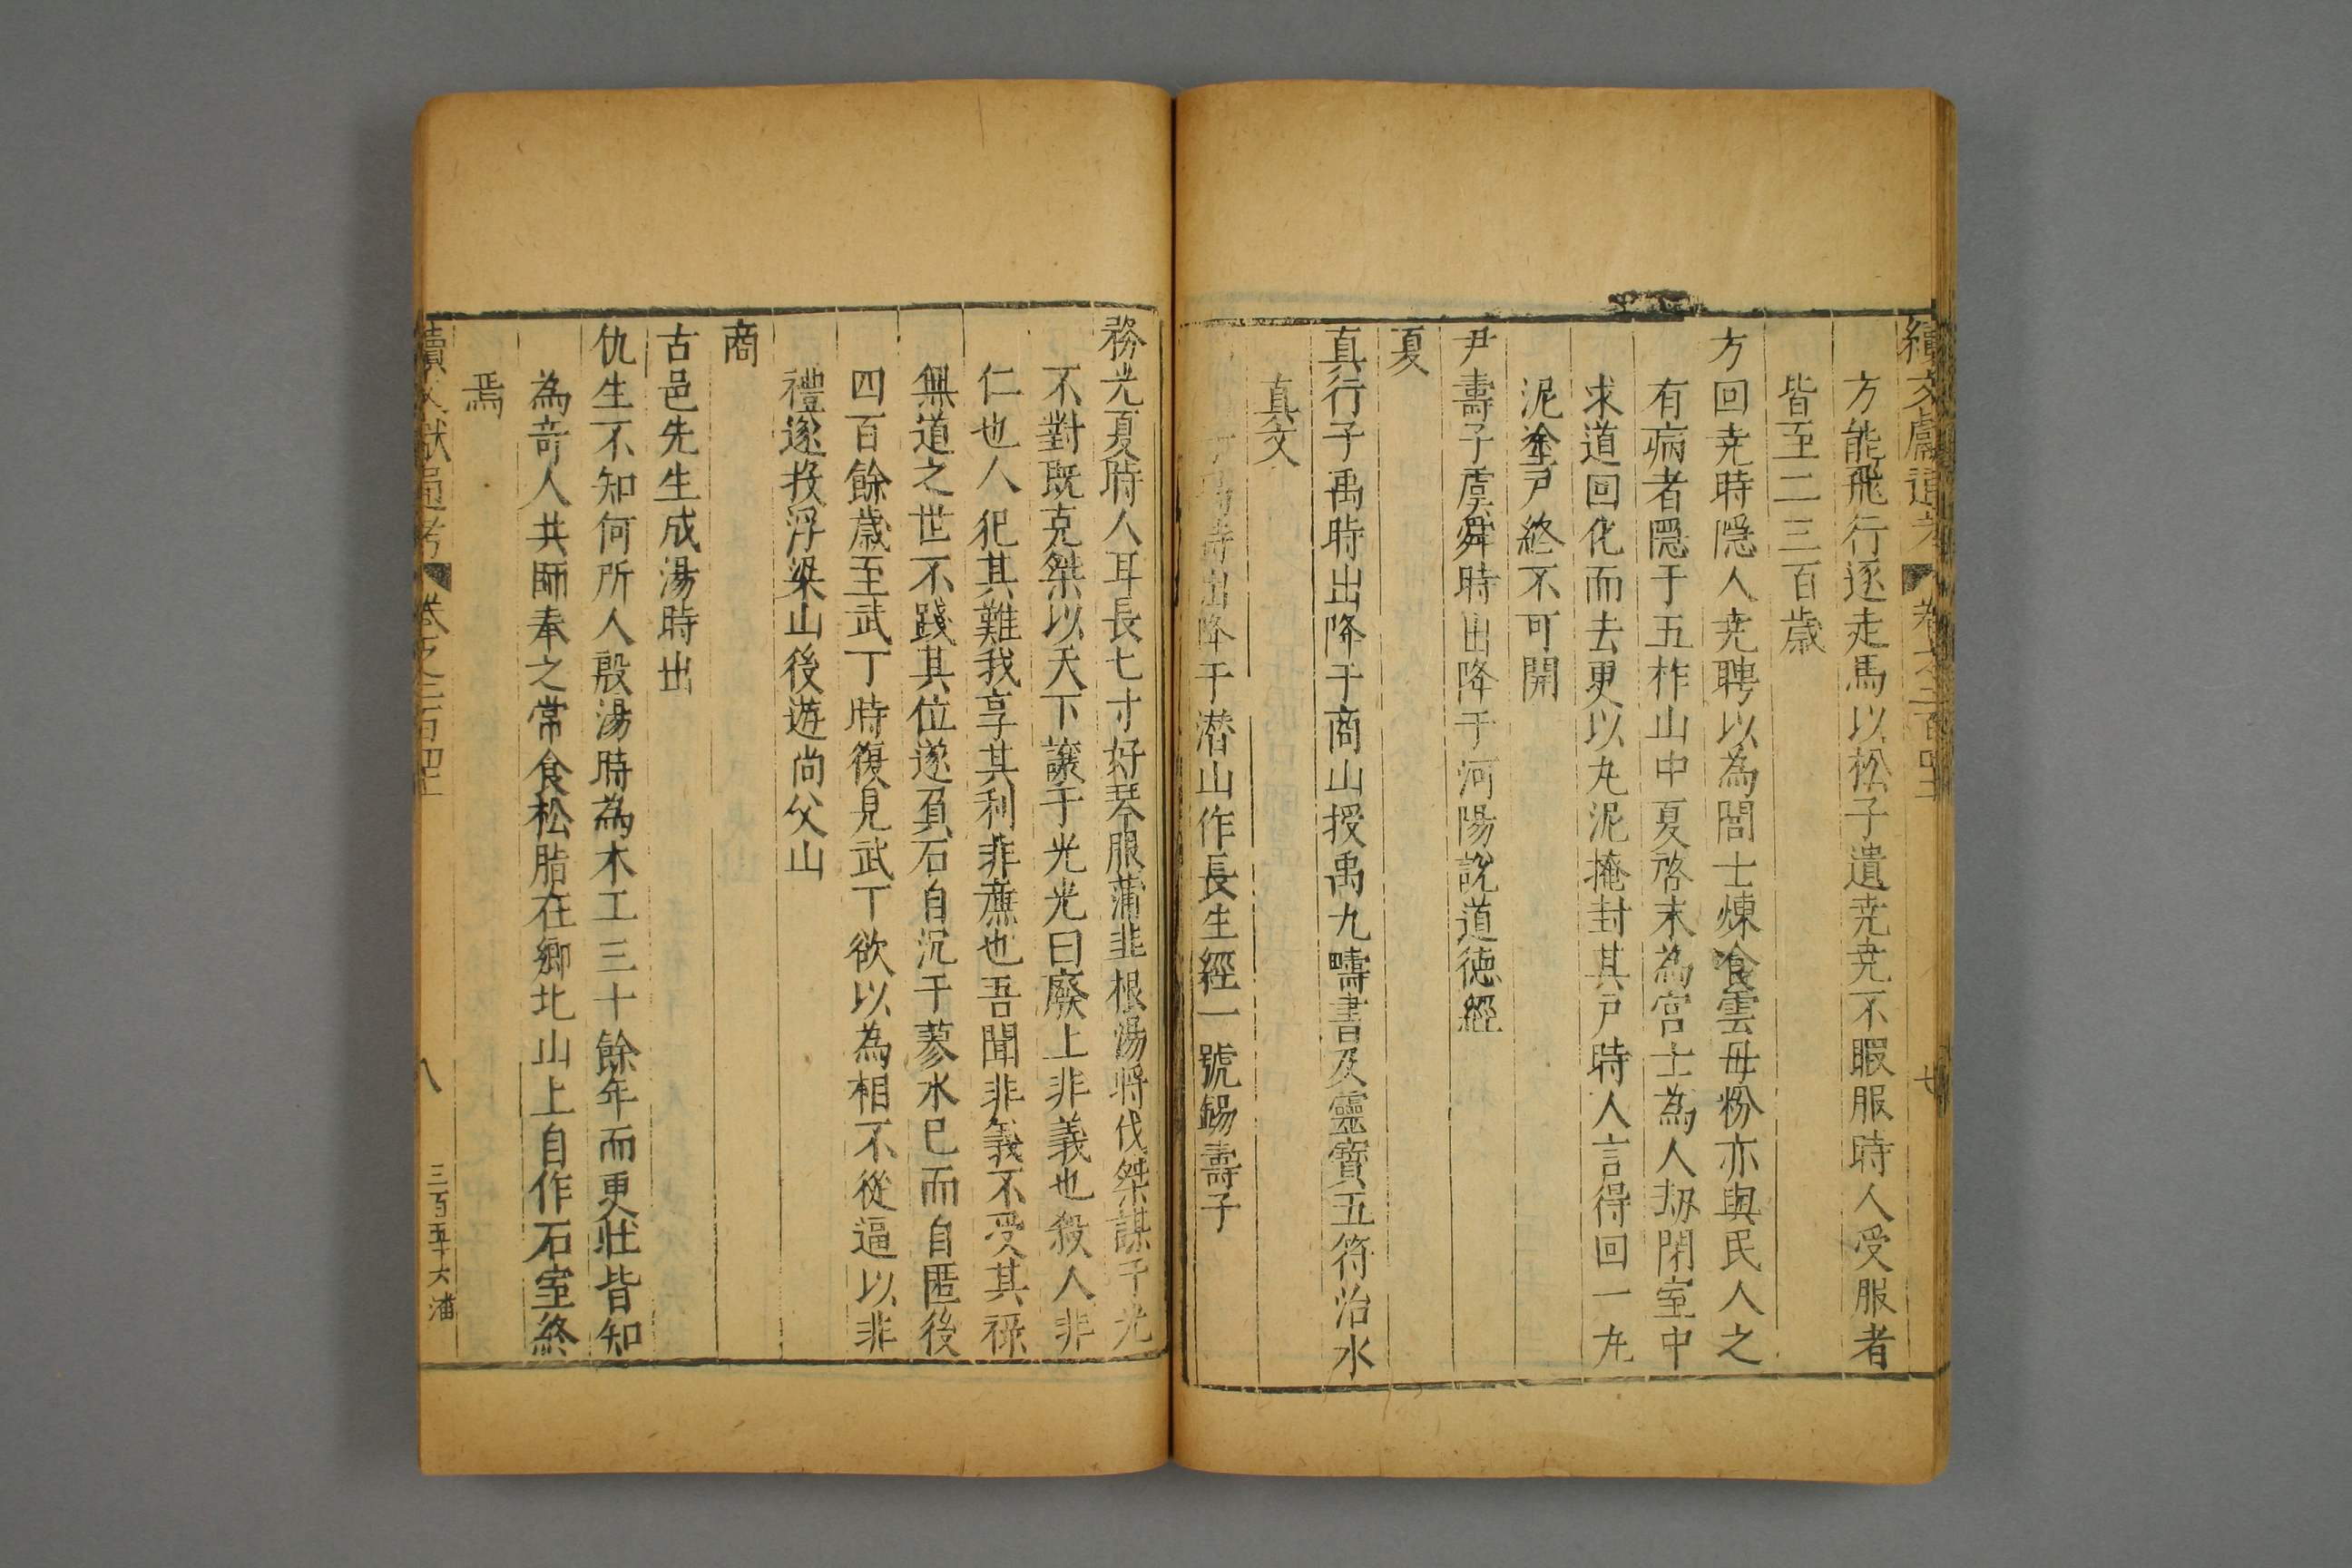 續文獻通考 卷之二百四十 七
方能飛行逐走馬以松子遺尭尭不暇服時人受服者
皆至二三百歲
方回尭時隠人尭聘以為閭士煉食雲毋粉亦與民人之
有病者隠于五柞山中夏啓末為宫士為人刼閉室中
求道回化而去更以九泥掩封其戸時人言得回一九
泥塗戸終不可開
尹壽子虞舜時出降于河陽說道徳經
夏
真行子禹時出降于商山授禹九疇書及靈寳五符治水
真文
時出降于潜山作長生經一號錫壽子
務光夏時人耳長七寸好琴服蒲韭根湯將伐桀謀于光
不對既克桀以天下譲于光光曰廢上非義也殺人非
仁也人犯其難我享其利非亷也吾聞非義不受其祿
無道之世不踐其位遂負石自沉于蓼水已而自匿後
四百餘歲至武丁時復見武丁欲以為相不從逼以非
禮遂投浮梁山後遊尚父山
商
古邑先生成湯時出
仇生不知何所人殷湯時為木工三十餘年而更壯皆知
為竒人共師奉之常食松脂在鄉北山上自作石室終
焉
續文獻通考 卷之二百四十 八 三百五十六 浦